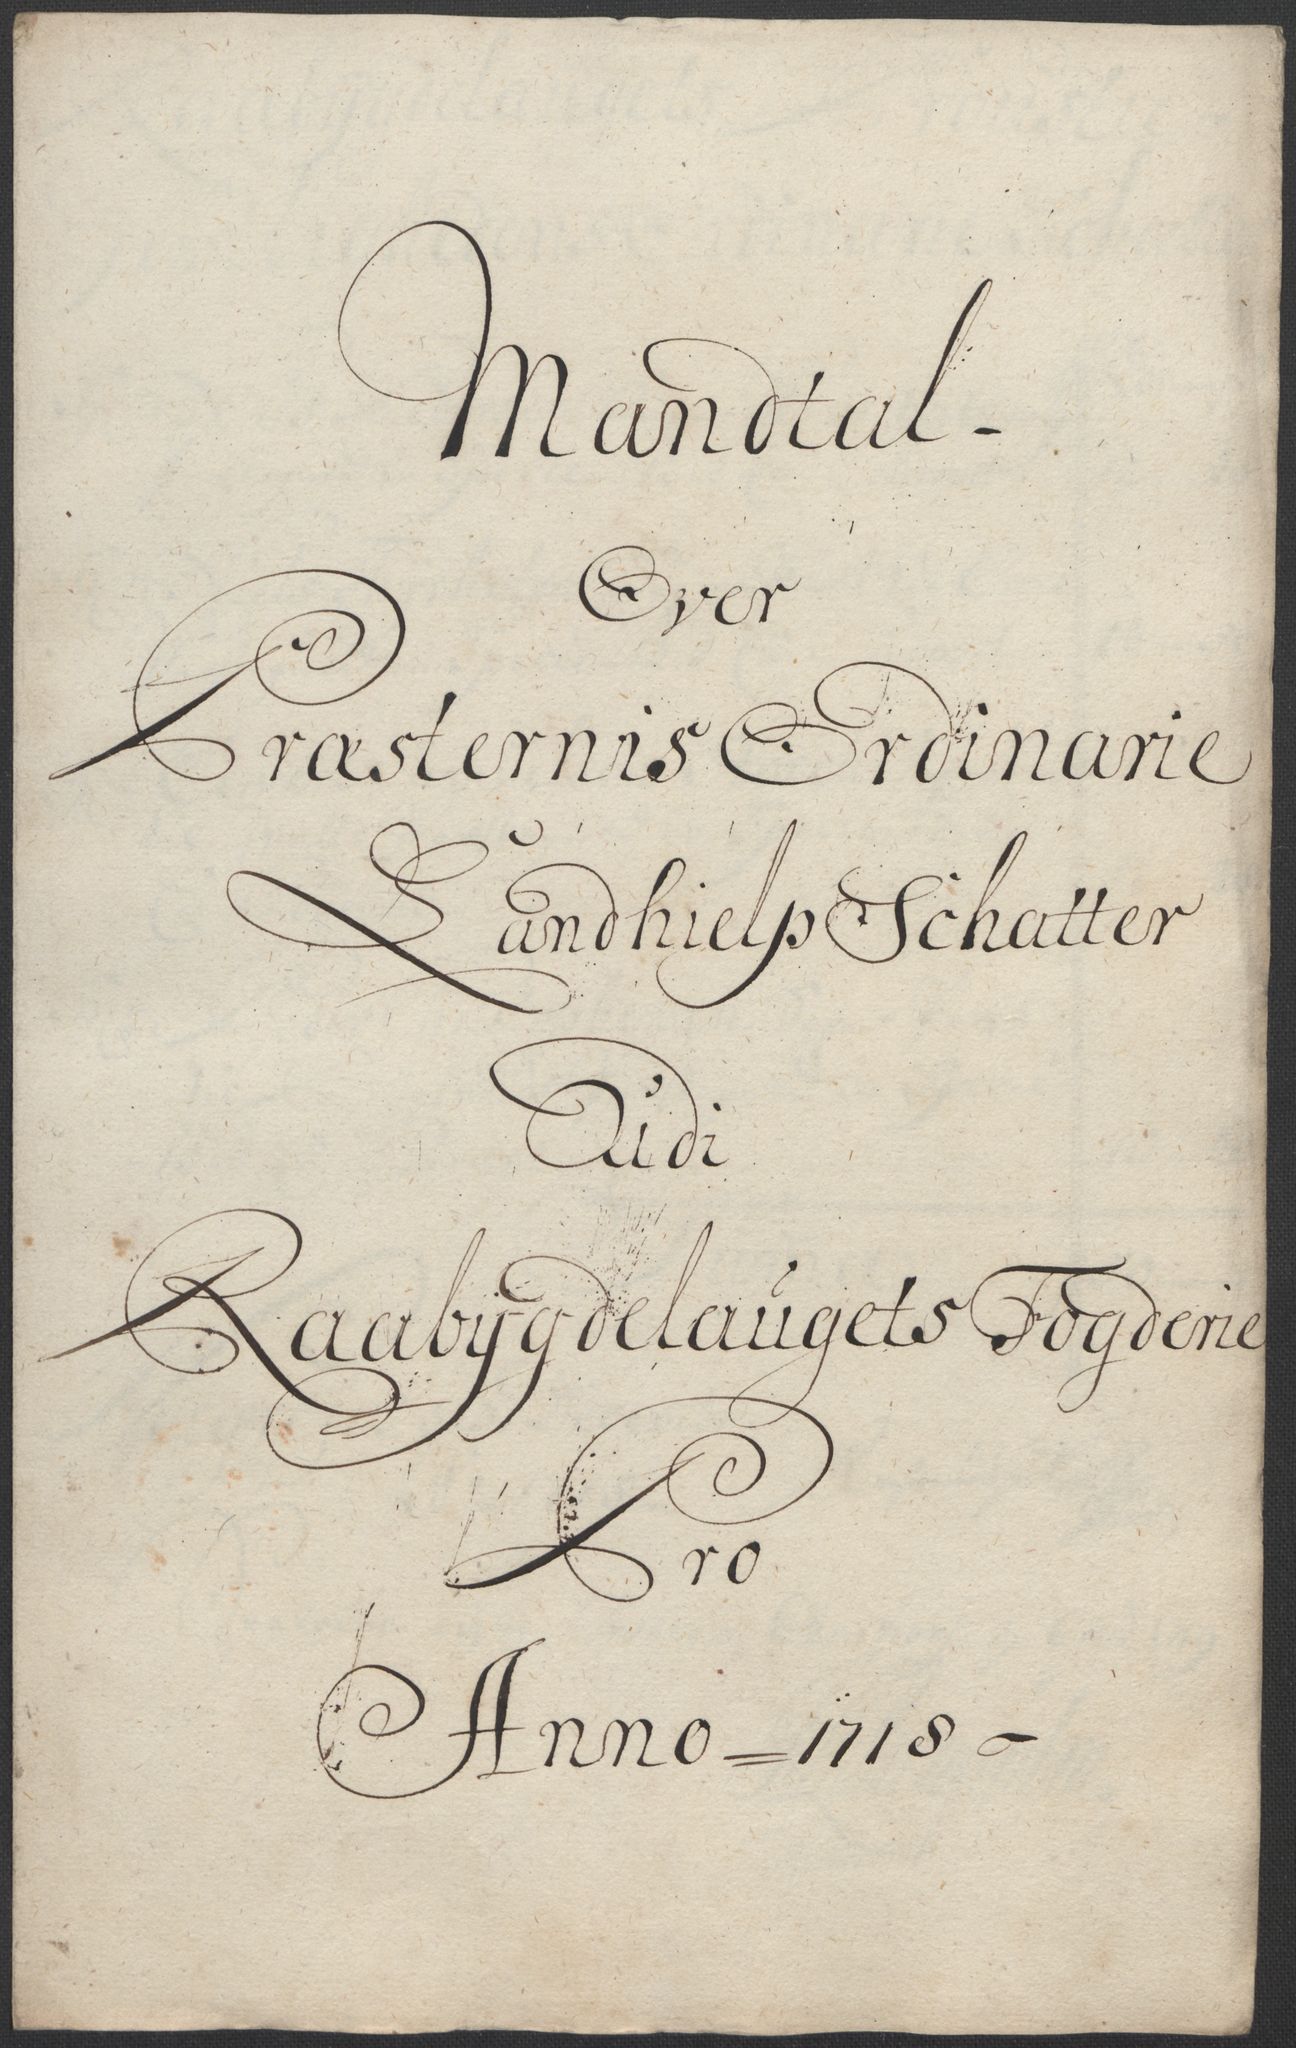 Mandtal -
Over
Præsternis Ordinarie
Landhielp Schatter
Udi
Raabÿgdelaugets Fogderie
Pro
Anno = 1718 -